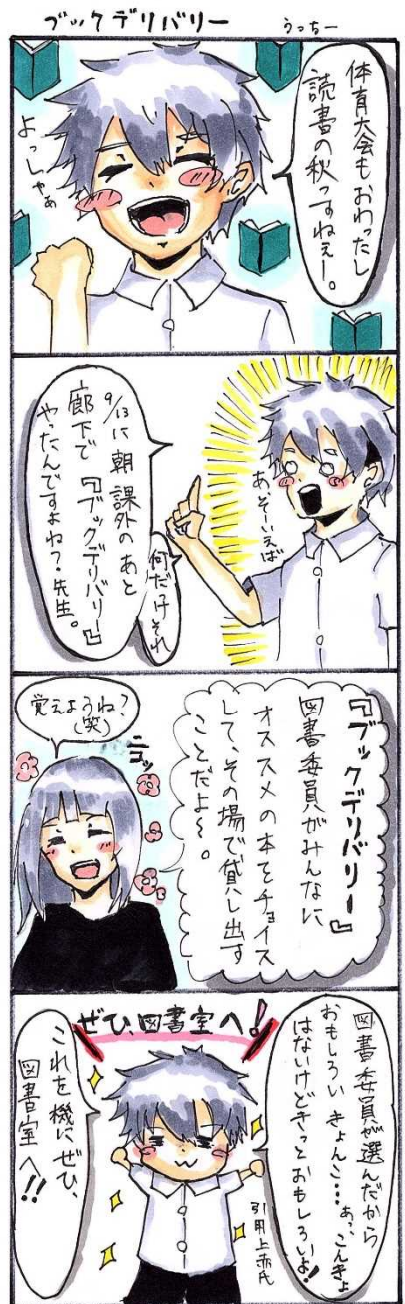 ブックデリバリー
うっちー
体育大会もおわったし
読書の秋っすねぇー。
よっしゃぁ
あ、そーいえば
9/13に朝課外のあと
廊下で『ブックデリバリー』
やったんですよね?先生。
何だっけそれ
『ブックデリバリー』
図書委員がみんなに
オススメの本をチョイス
して、その場で貸し出す
ことだよ〜。
覚えようね?
(笑)
ニコッ
ぜひ、図書室へ!
図書委員が選んだから
おもしろいきょんこ…あっ、こんきょ
はないけどきっとおもしろいよ!
引用上赤氏
これを機にぜひ、
図書室へ!!